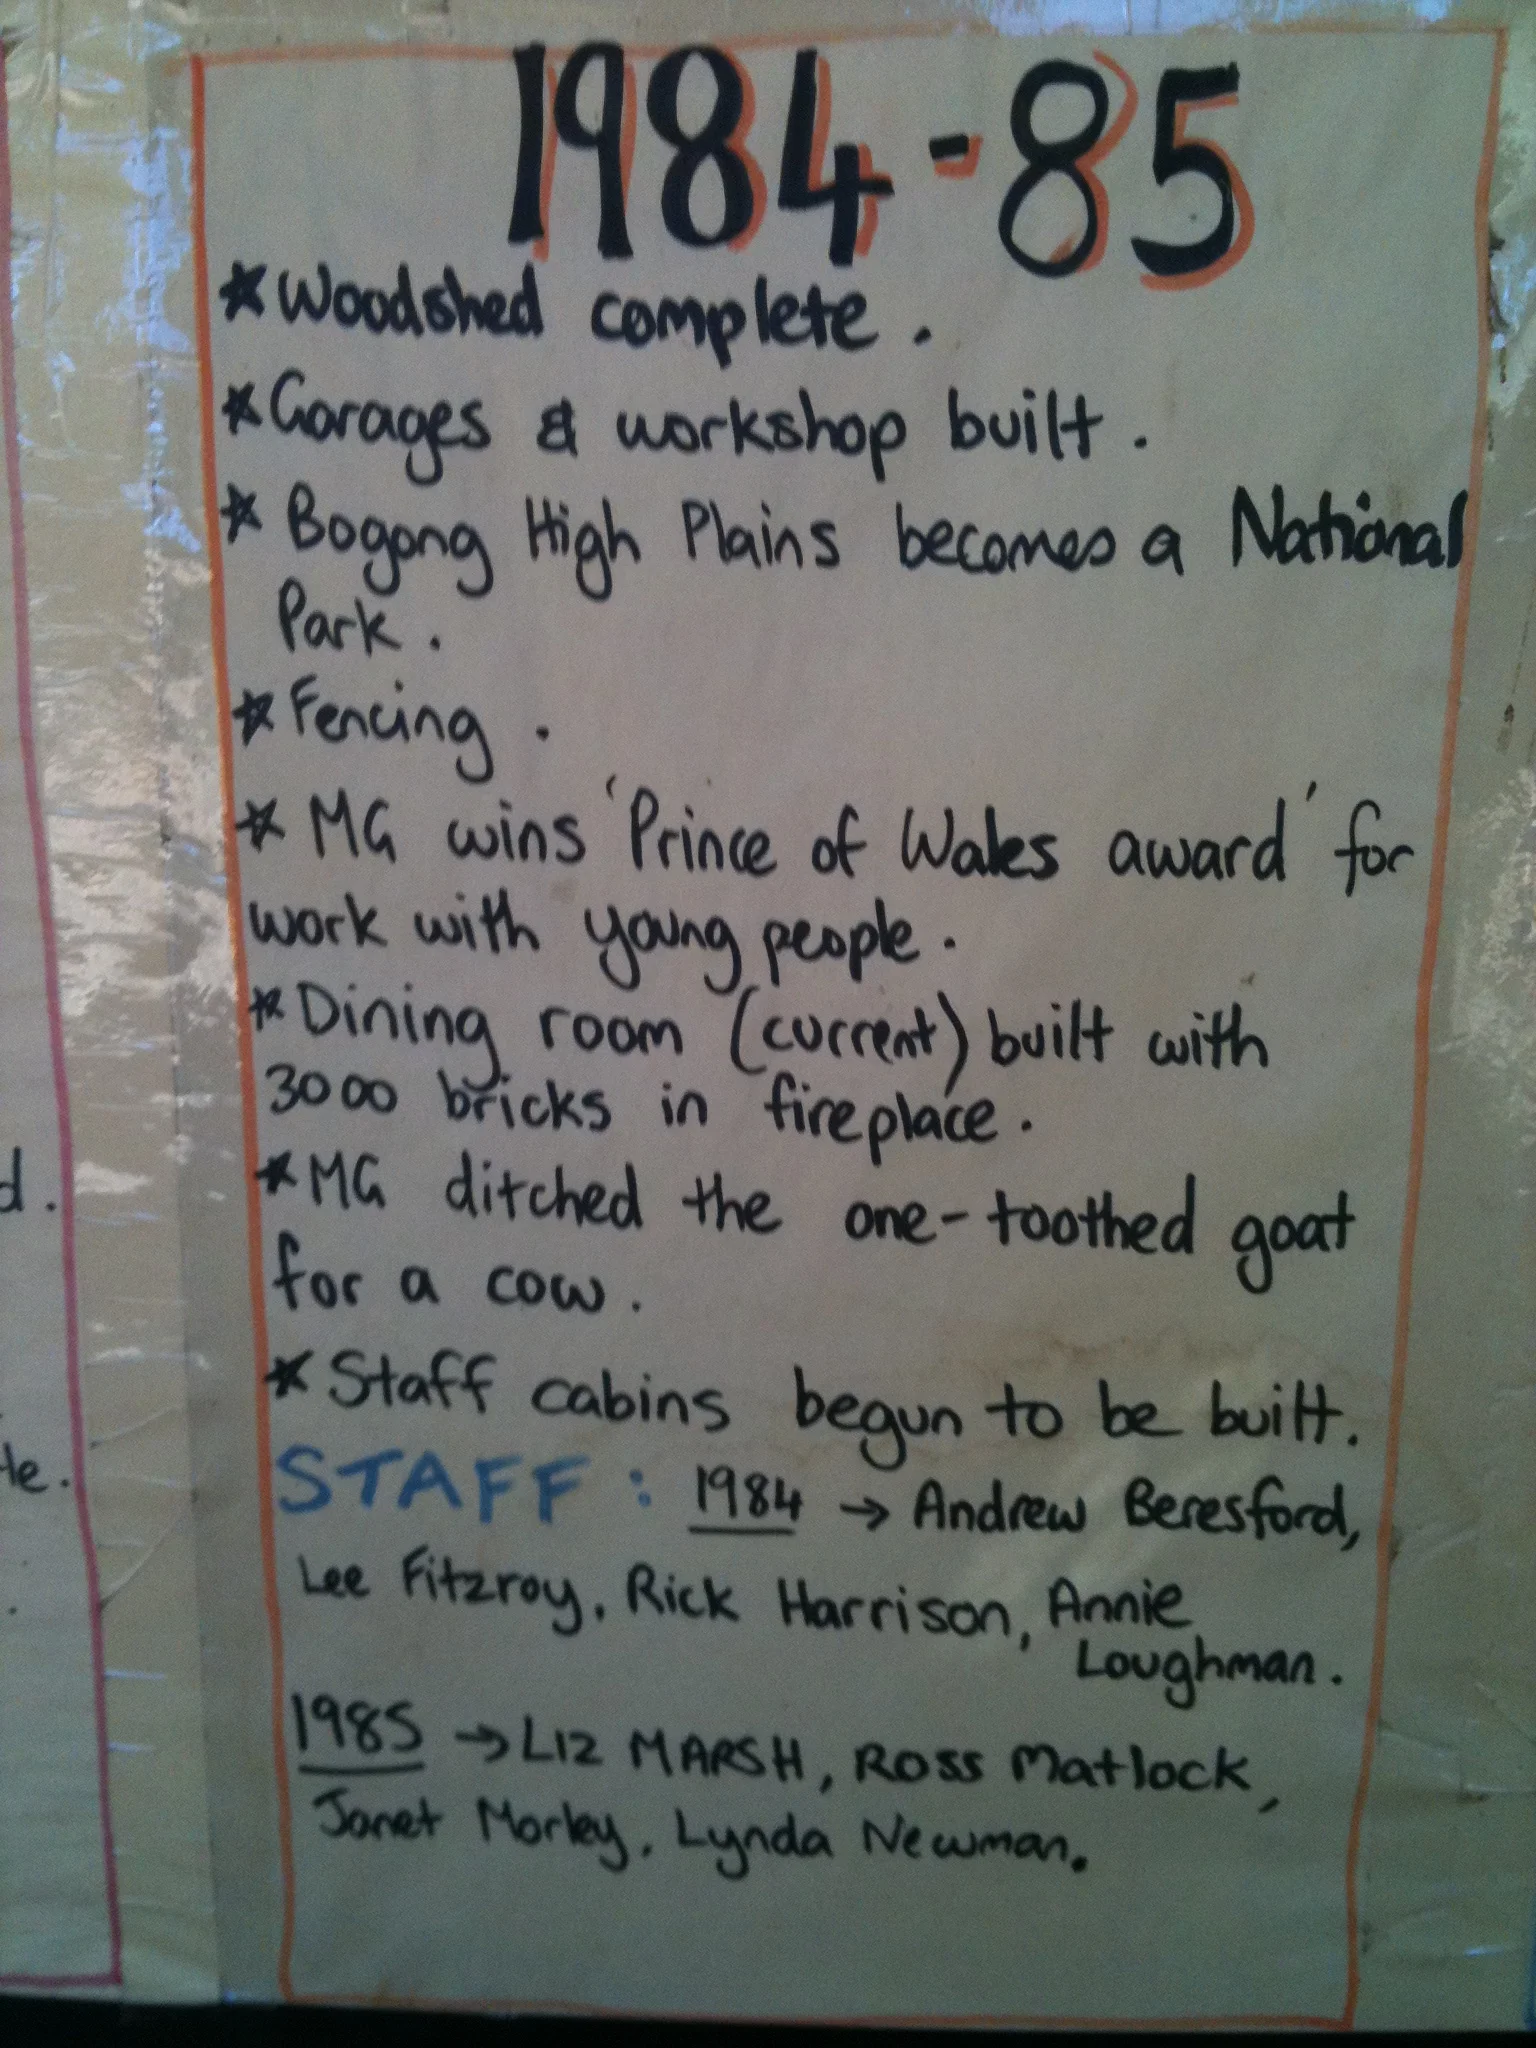 1984-85
* Woodshed complete.
* Garages & workshop built.
* Bogong High Plains becomes a National
Park.
* Fencing.
* MG wins 'Prince of Wales award' for
work with young people.
* Dining room (current) built with
3000 bricks in fireplace.
* MG ditched the one-toothed goat
for a cow.
* Staff cabins begun to be built.
STAFF : 1984 → Andrew Beresford,
Lee Fitzroy, Rick Harrison, Annie
Loughman.
1985 → LIZ MARSH, ROSS Matlock,
Janet Morley, Lynda Newman.